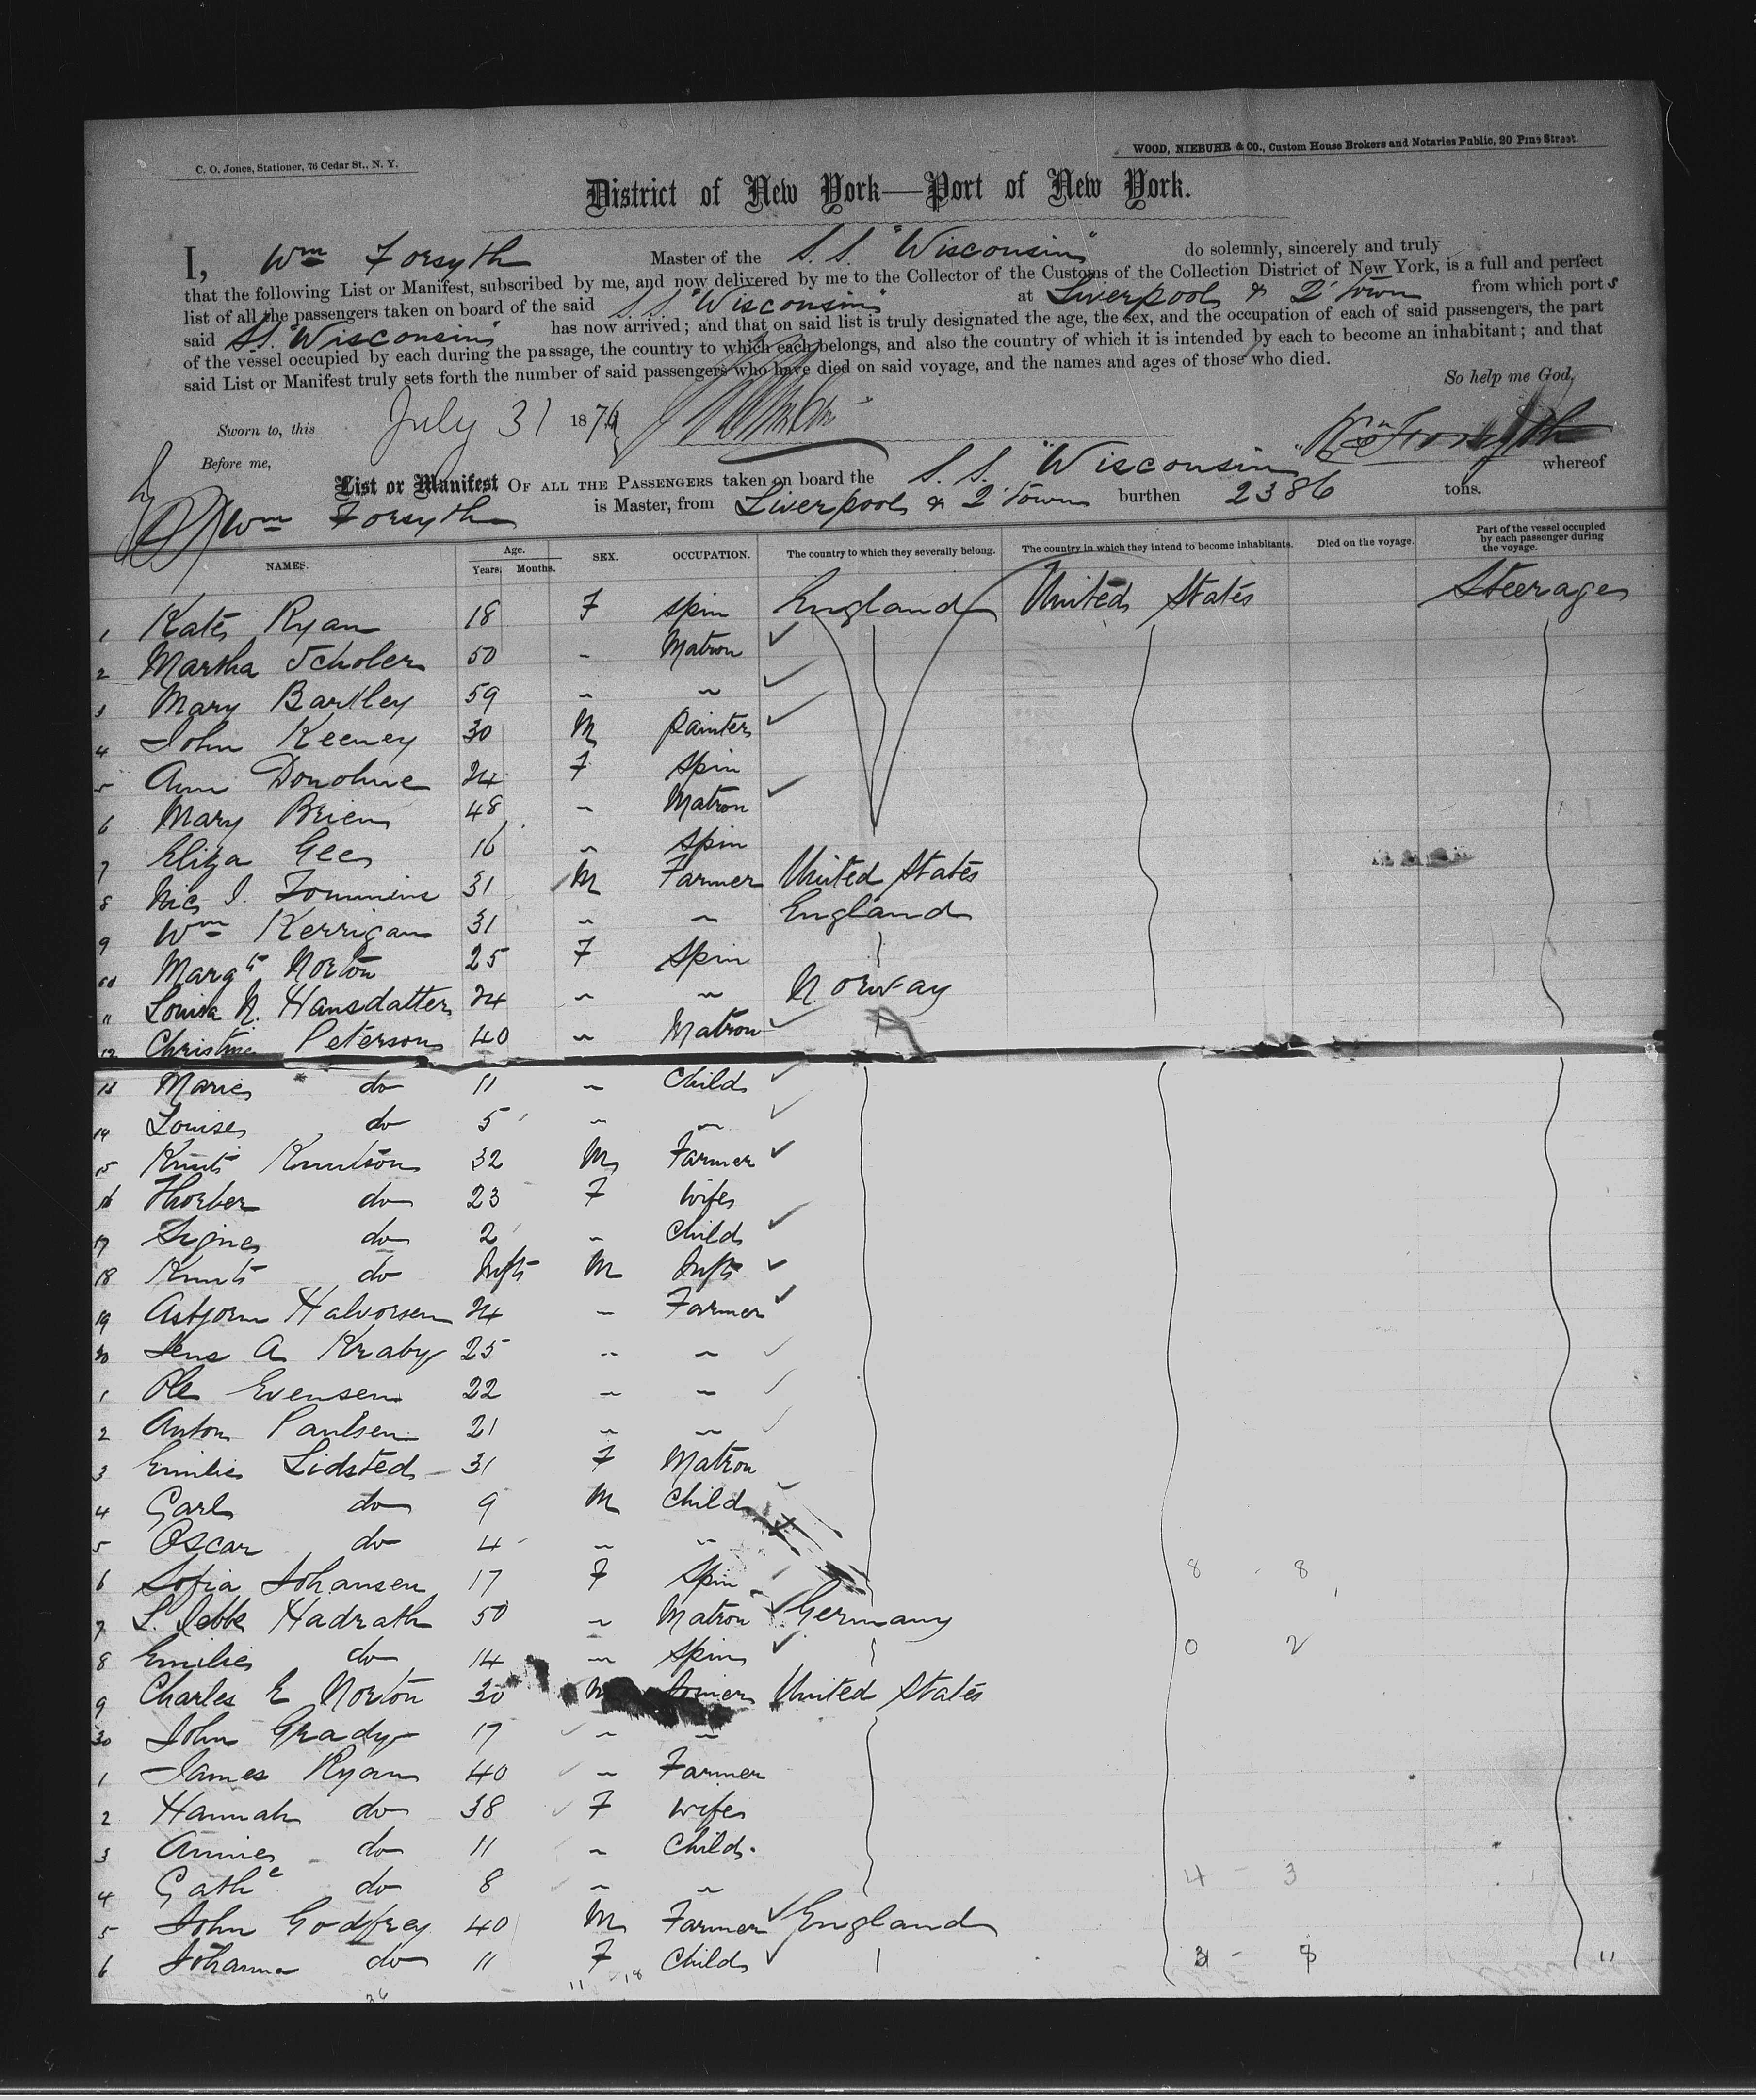 C. O. Jones, Stationer, 76 Cedar St., N. Y.
WOOD, NIEBUHR & CO., Custom House Brokers and Notaries Public, 20 Pine Street.
District of New York—Port of New York.
I, Wm Forsyth Master of the S. S. "Wisconsin" do solemnly, sincerely and truly
that the following List or Manifest, subscribed by me, and now delivered by me to the Collector of the Customs of the Collection District of New York, is a full and perfect
list of all the passengers taken on board of the said S. S. "Wisconsin" at Liverpool & Q'Town from which port s
said SS. "Wisconsin" has now arrived; and that on said list is truly designated the age, the sex, and the occupation of each of said passengers, the part
of the vessel occupied by each during the passage, the country to which each belongs, and also the country of which it is intended by each to become an inhabitant; and that
said List or Manifest truly sets forth the number of said passengers who have died on said voyage, and the names and ages of those who died.
So help me God,
Sworn to, this July 31 187
Wm Forsyth
Before me,
List or Manifest OF ALL THE PASSENGERS taken on board the S. S. "Wisconsin" whereof
Wm Forsyth is Master, from Liverpool & Q'Town burthen 2386 tons.
NAMES. Age. Years. Months. SEX. OCCUPATION. The country to which they severally belong. The country in which they intend to become inhabitants. Died on the voyage. Part of the vessel occupied by each passenger during the voyage.
1 Kate Ryan 18 F Spin England United States Steerage
2 Martha Scholer 50 " Matron
3 Mary Bartley 59 " "
4 John Keeney 30 M Painter
5 Ann Donohue 24 F Spin
6 Mary Brien 48 " Matron
7 Eliza Gee 16 " Spin
8 Nic J. 31 M Farmer United States
9 Wm Kerrigan 31 " " England
10 Margt Norton 25 F Spin
11 Louisa N. Hansdatter 24 " " Norway
12 Christine Peterson 40 " Matron
13 Marie do 11 " Child
14 Louise do 5 " "
15 Knut Knutson 32 M Farmer
16 Thorber do 23 F Wife
17 Signe do 2 " Child
18 Knut do Inft M Inft
19 Astjorn Halvorsen 24 " Farmer
20 Jens A Kraby 25 " "
1 Ole Evensen 22 " "
2 Anton Paulsen 21 " "
3 Emilie Lidsted 31 F Matron
4 Carl do 9 M Child
5 Oscar do 4 " "
6 Sofia Johansen 17 F Spin 8 - 8
7 L. Hadrath 50 " Matron Germany
8 Emilie do 14 " Spin 0 2
9 Charles E Norton 30 M Joiner United States
30 John Grady 17 " "
1 James Ryan 40 " Farmer
2 Hannah do 38 F Wife
3 Annie do 11 " Child
4 Cathe do 8 " " 4 - 3
5 John Godfrey 40 M Farmer England
6 Johanna do 11 F Child 3 - 8 "
36 11 18